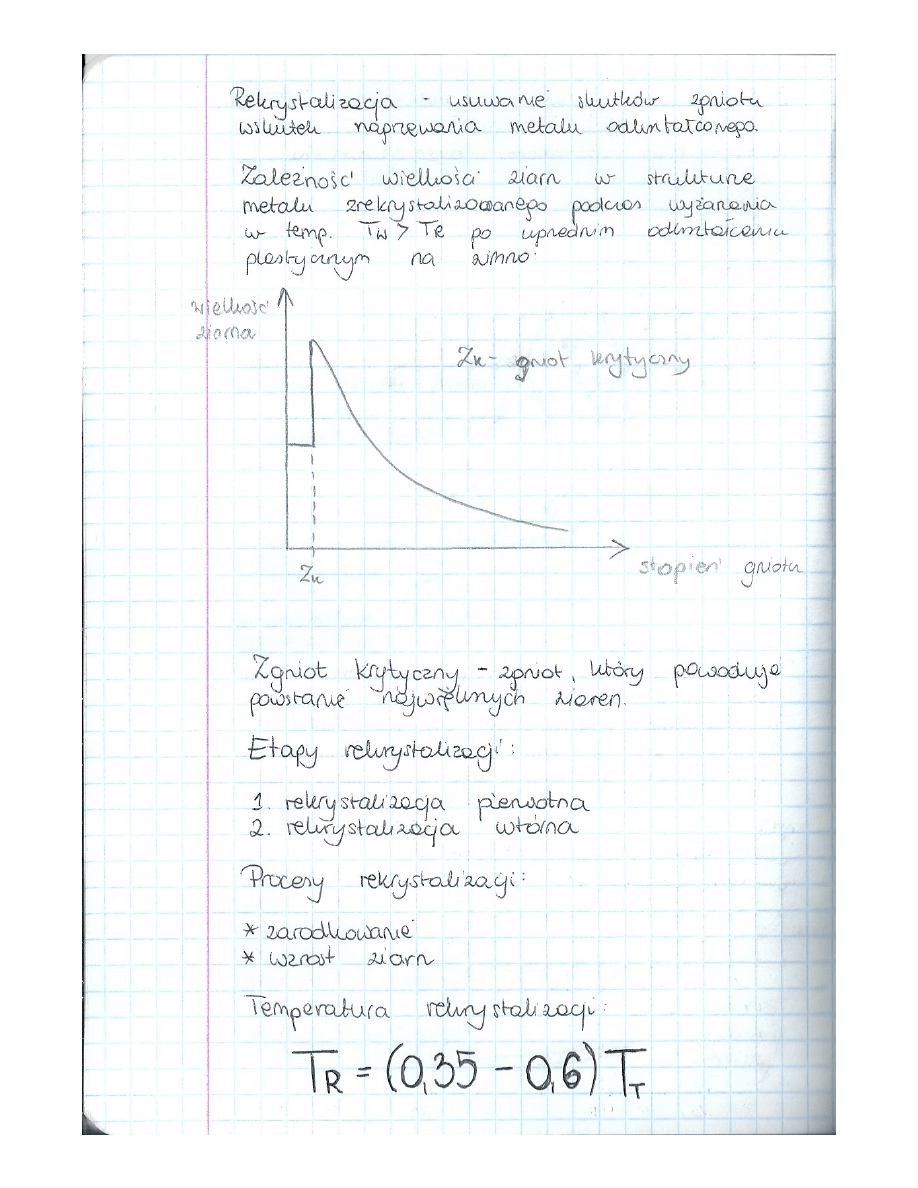 Rekrystalizacja - usuwanie skutków zgniotu
wskutek nagrzewania metalu odkształconego.
Zależność wielkości ziarn w strukturze
metalu zrekrystalizowanego podczas wyżarzania
w temp. Tw > TR po uprzednim odkształceniu
plastycznym na zimno:
wielkość
ziarna
Zk - gniot krytyczny
Zk
stopień gniotu
Zgniot krytyczny - zgniot, który powoduje
powstanie największych ziaren.
Etapy rekrystalizacji:
1. rekrystalizacja pierwotna
2. rekrystalizacja wtórna
Procesy rekrystalizacji:
* zarodkowanie
* wzrost ziarn
Temperatura rekrystalizacji:
TR = (0,35 - 0,6) TT